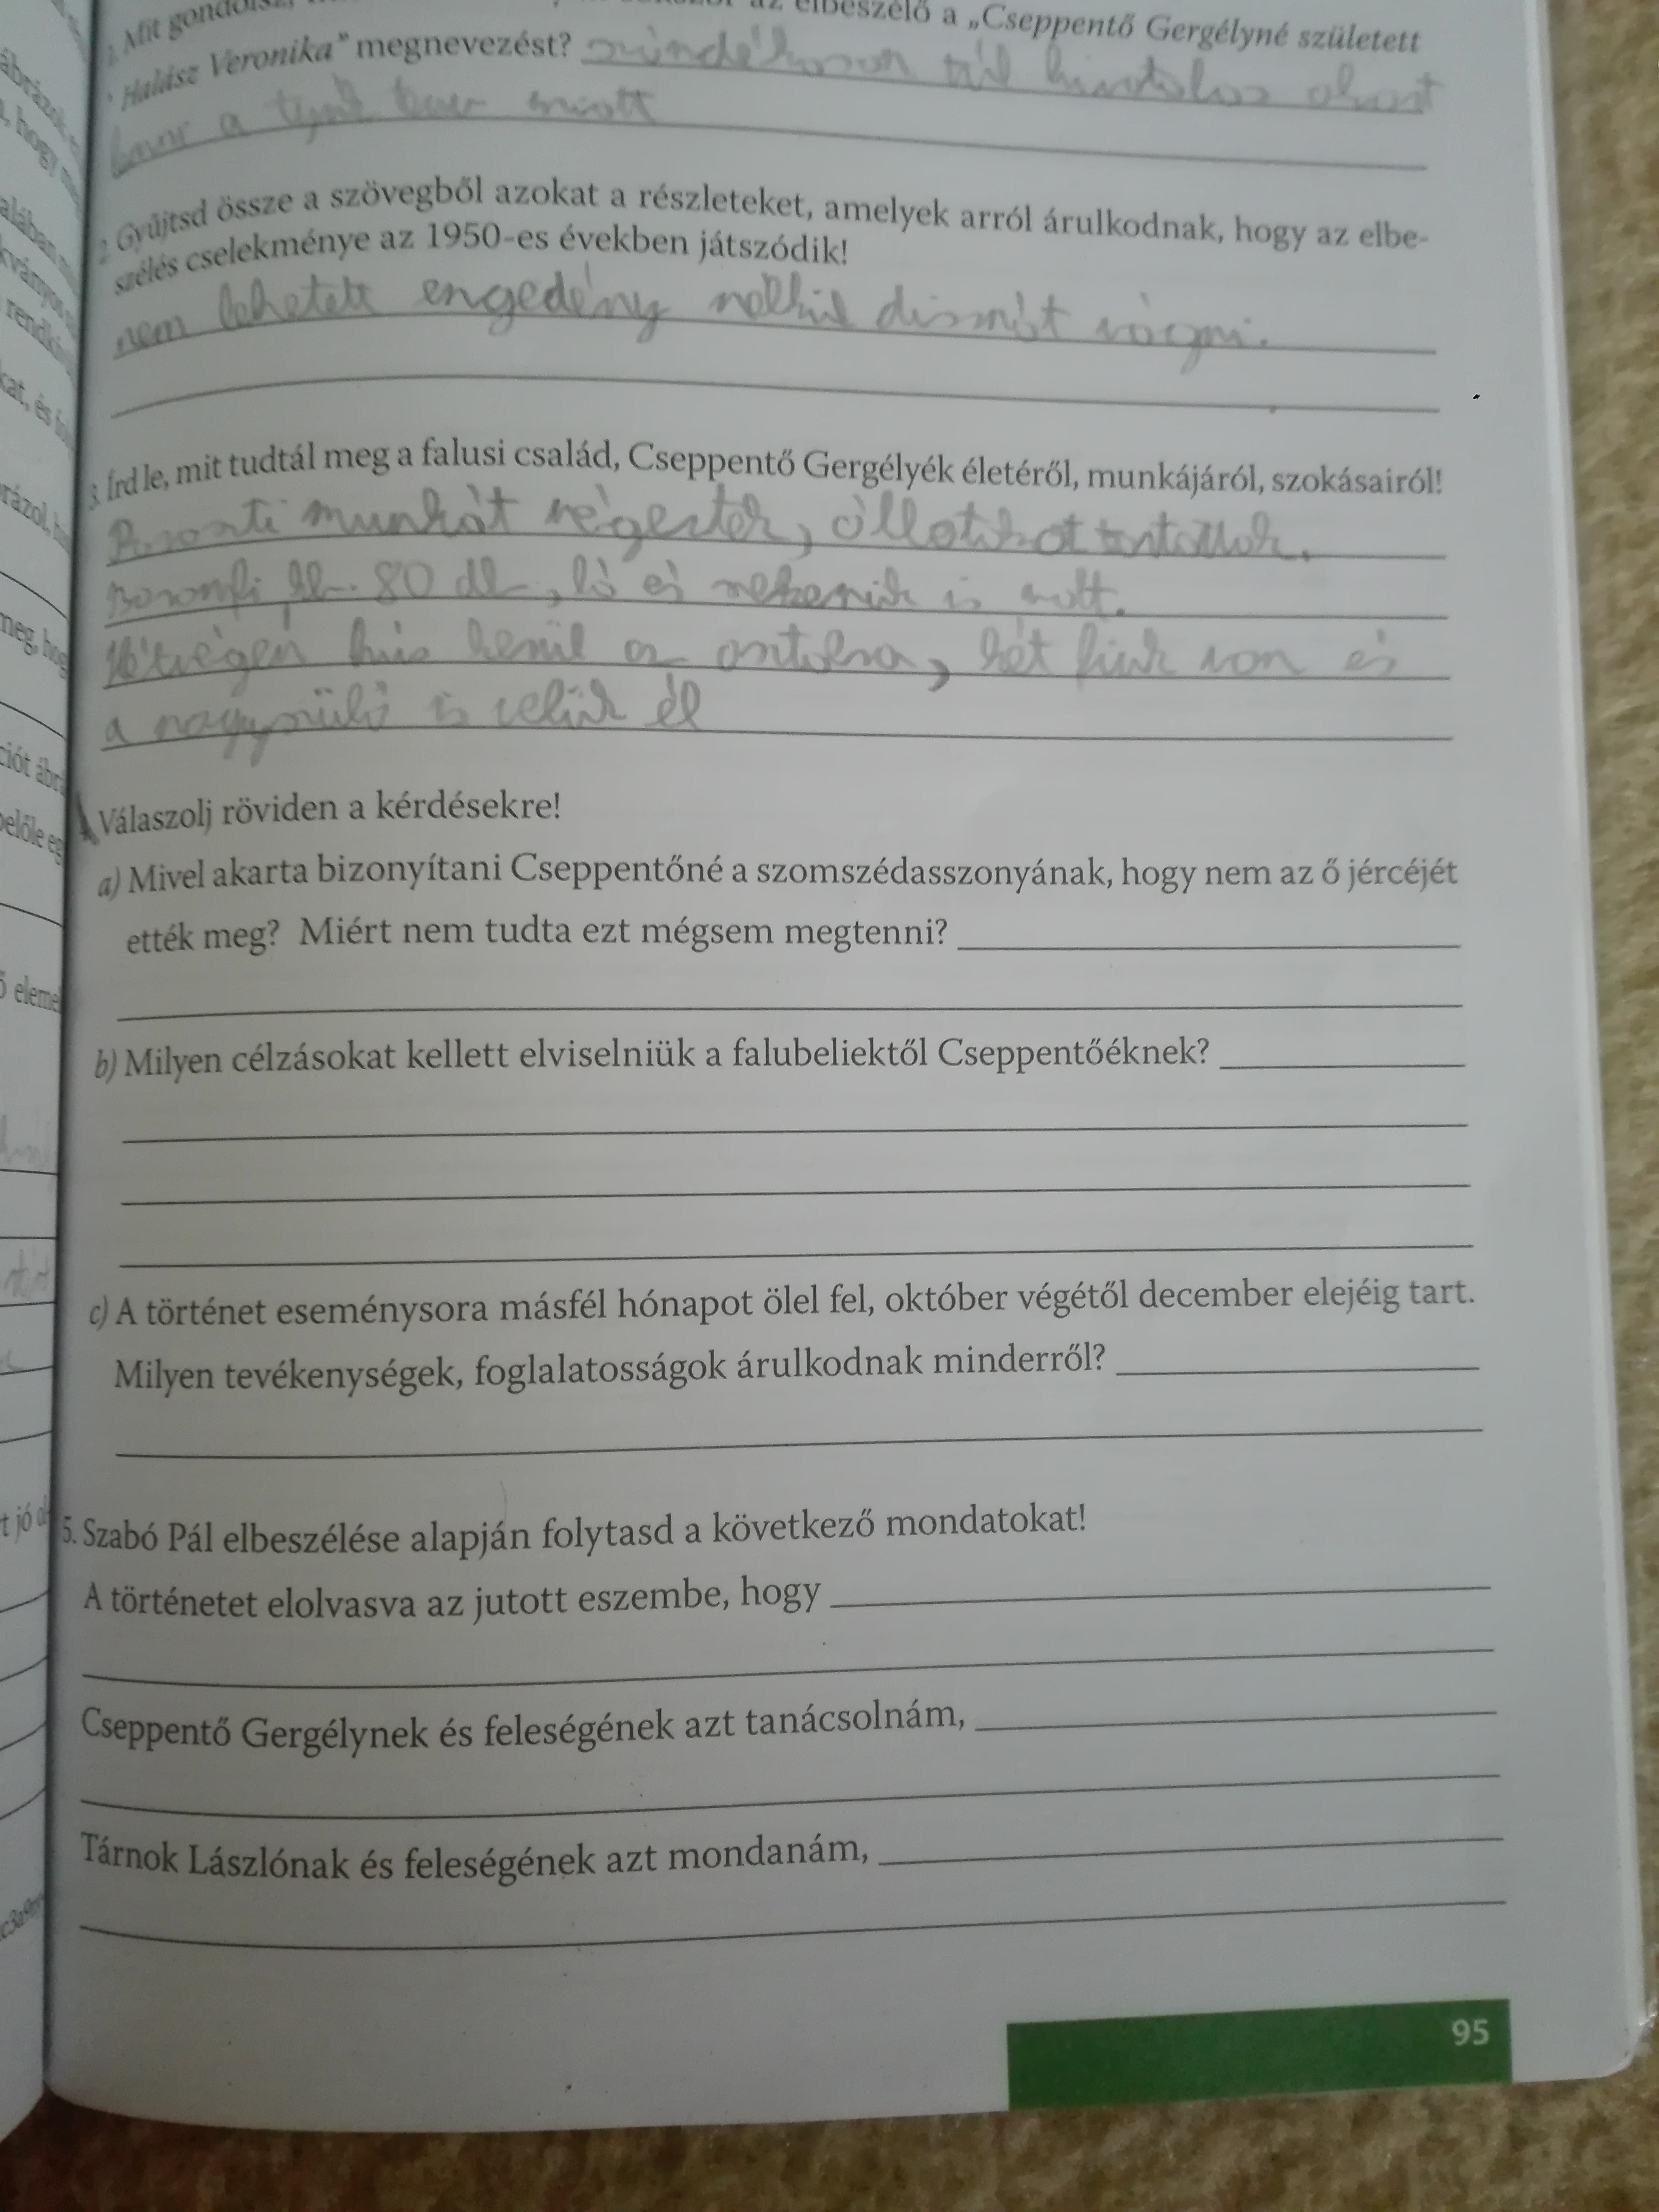 az elbeszélő a „Cseppentő Gergélyné született
Halász Veronika” megnevezést? túl hivatalos
a miatt
2. Gyűjtsd össze a szövegből azokat a részleteket, amelyek arról árulkodnak, hogy az elbe-
szélés cselekménye az 1950-es években játszódik!
nem lehetett engedény nélkül disznót vágni.
3. Írd le, mit tudtál meg a falusi család, Cseppentő Gergélyék életéről, munkájáról, szokásairól!
munkát végeztek, állatokat tartottak.
80 ló és is volt.
Hétvégén hús kerül az asztalra, két fiuk van és
a nagyszülő is velük él
Válaszolj röviden a kérdésekre!
a) Mivel akarta bizonyítani Cseppentőné a szomszédasszonyának, hogy nem az ő jércéjét
ették meg? Miért nem tudta ezt mégsem megtenni?
b) Milyen célzásokat kellett elviselniük a falubeliektől Cseppentőéknek?
c) A történet eseménysora másfél hónapot ölel fel, október végétől december elejéig tart.
Milyen tevékenységek, foglalatosságok árulkodnak minderről?
5. Szabó Pál elbeszélése alapján folytasd a következő mondatokat!
A történetet elolvasva az jutott eszembe, hogy
Cseppentő Gergélynek és feleségének azt tanácsolnám,
Tárnok Lászlónak és feleségének azt mondanám,
95